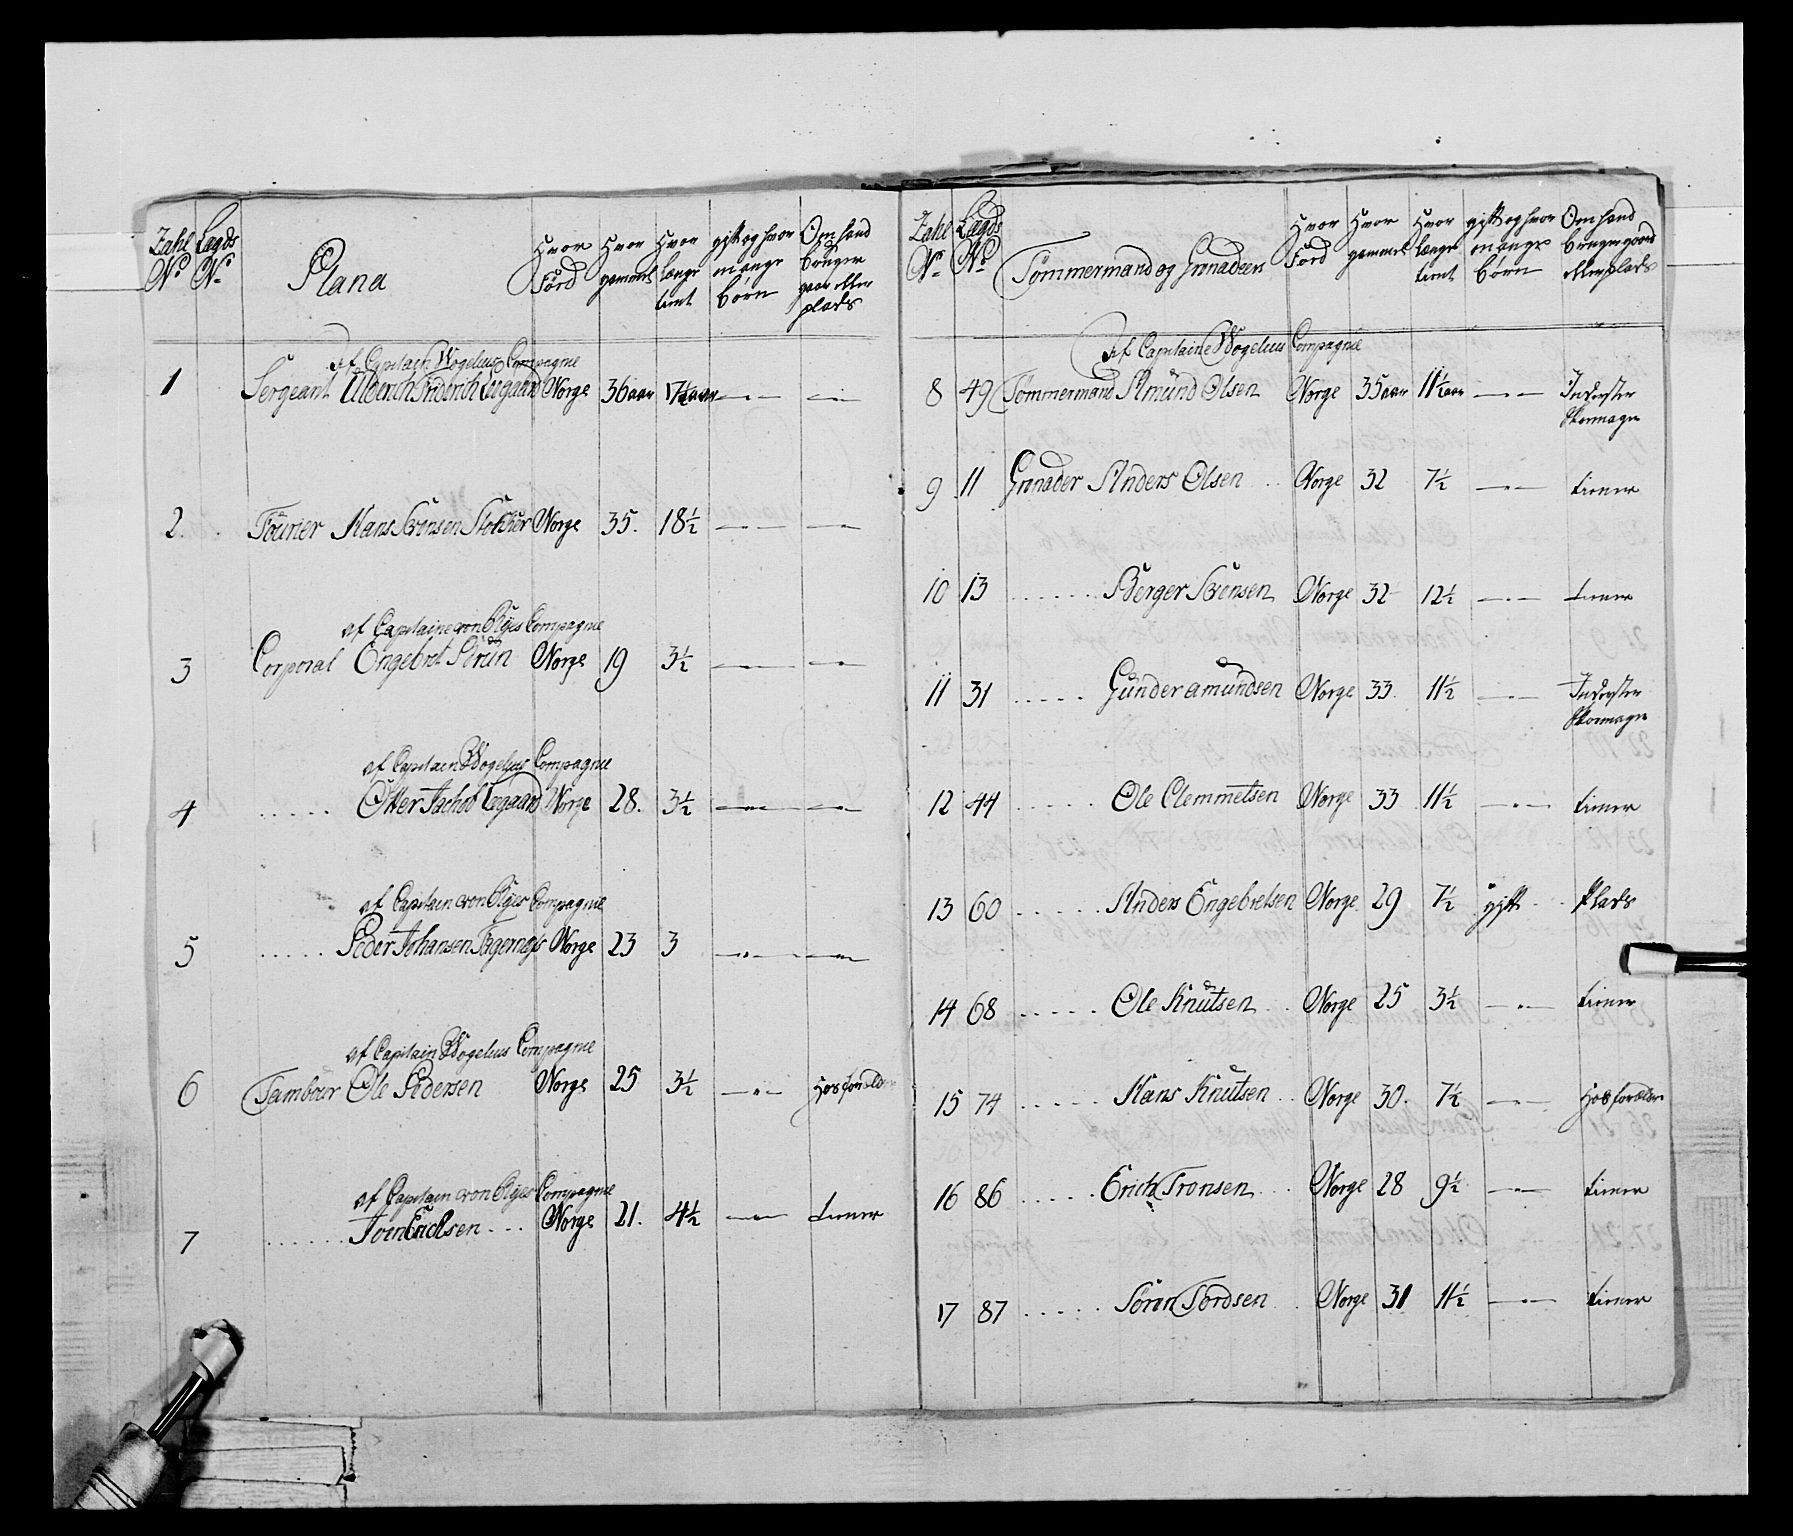 Zahl No
Lægds No
Plana
Hvor Fød
Hvor gammel
Hvor længe tient
gift og hvor mange børn
Om hand bruger gaar eller plads
af Capitain Wogelius Compagnie
1 Sergeant Ulderich Friderich Leegaard Norge 36 aar 17½ aar
2. Fourier Hans Sørensen Norge 35. 18½
af Capitaine von Compagnie
3 Corporal Engebret Norge 19 3½
af Capitain Wogelius Compagnie
4 Otter Jachob Leegaard Norge 28. 3½
af Capitain von Compagnie
5 Peder Johansen Norge 23 3
af Capitain Wogelius Compagnie
6 Tambour Ole Pedersen Norge 25 3½ Hos forældre
af Capitain von Compagnie
7 Erichsen Norge 21. 4½ tiener
Zahl No
Lægds No
Tømmermand og Grenadeers
Hvor Fød
Hvor gammel
Hvor længe tient
gift og hvor mange børn
Om hand bruger gaard eller plads
Af Capitaine Wogelius Compagnie
8 49 Tømmermand Amund Olsen Norge 35 aar 11½ aar Inderster
Skoemager
9 11 Grenader Anders Olsen Norge 32 7½ tiener
10 13 Berger Norge 32 12½ tiener
11 31 Gunder amundsen Norge 33 11½ Inderster
Skoemager
12 44 Ole Clemmetsen Norge 33 11½ tiener
13 60 Anders Engebretsen Norge 29 7½ gift Plads
14 68 Ole Knutsen Norge 25 3½ tiener
15 74 Hans Knutsen Norge 30. 7½ Hos forældre
16 86 Erich Tronsen Norge 28 9½ tiener
17 87 Sören Tordsen Norge 31 11½ tiener